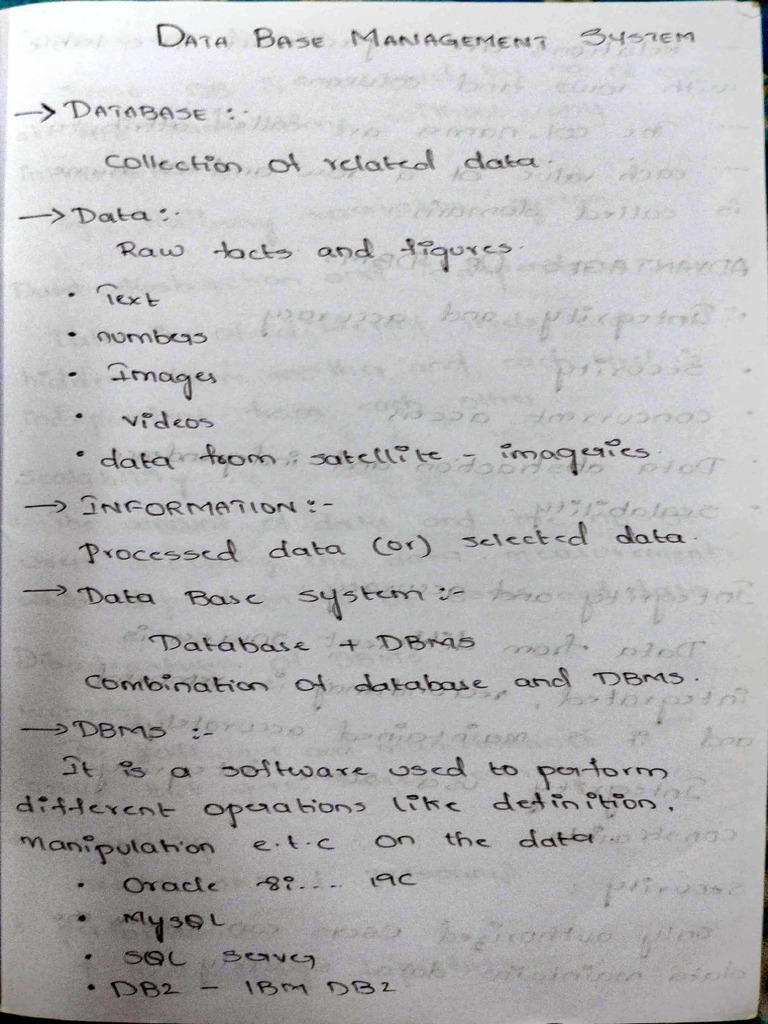 DATA BASE MANAGEMENT SYSTEM
→ DATABASE :-
Collection of related data.
→ Data :-
Raw facts and figures.
• Text
• numbers
• Images
• videos
• data from satellite - imageries.
→ INFORMATION :-
Processed data (or) selected data.
→ Data Base system :-
Database + DBMS
Combination of database and DBMS.
→ DBMS :-
It is a software used to perform
different operations like definition,
manipulation e.t.c on the data
• Oracle 8i.... 19C
• MySQL
• SQL Server
• DB2 - IBM DB2